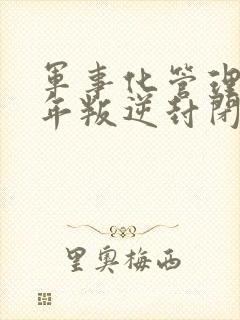 軍事化管理
年叛逆封閉
里奧梅西